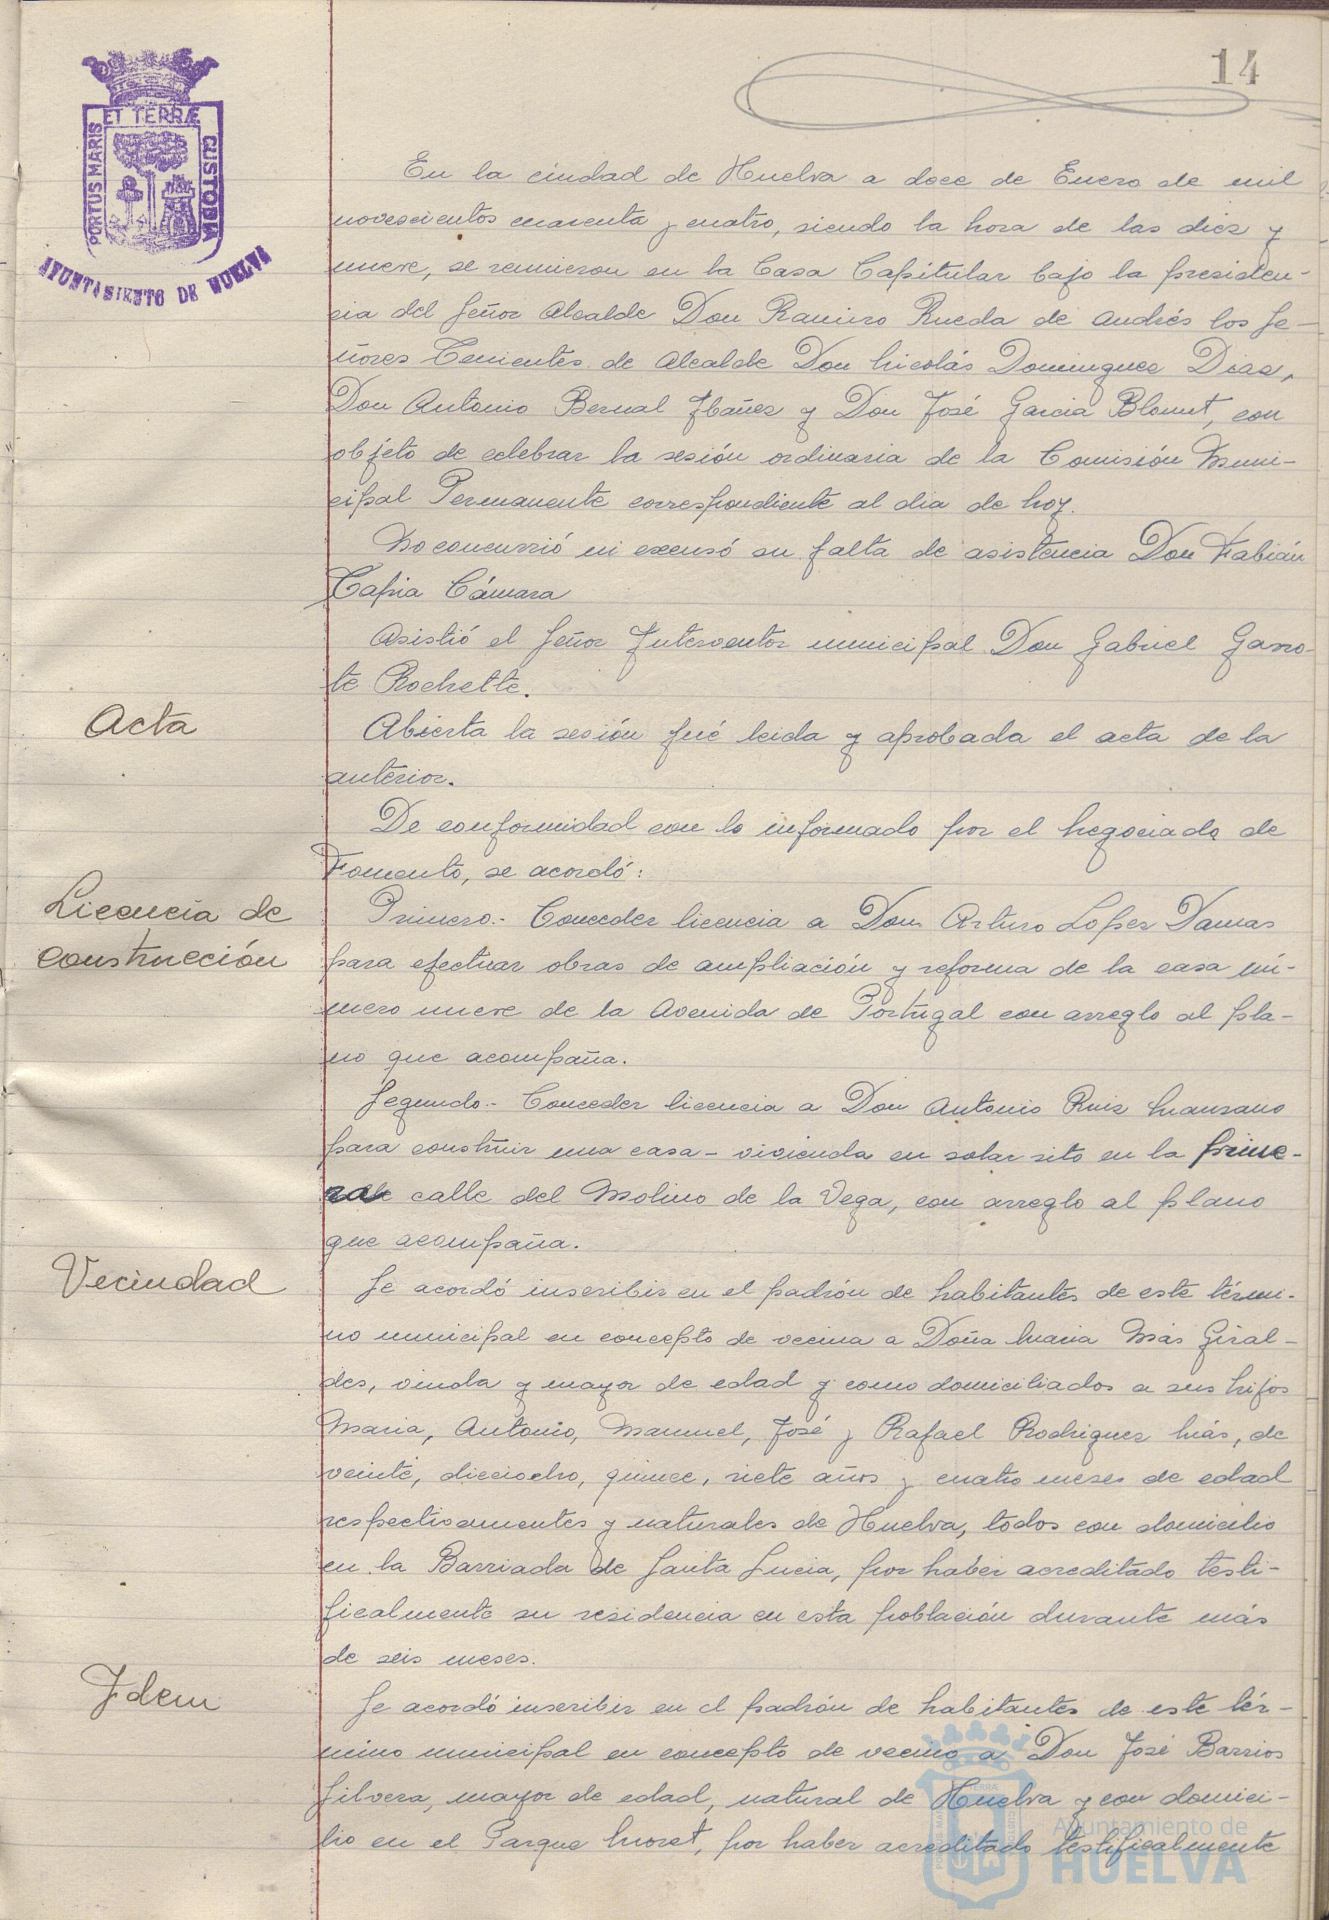 14
PORTUS MARIS ET TERRÆ CUSTODIA
AYUNTAMIENTO DE HUELVA
En la ciudad de Huelva a doce de Enero de mil
novescientos cuarenta y cuatro, siendo la hora de las diez y
nueve, se reunieron en la Casa Capitular bajo la presiden-
cia del Señor Alcalde Don Ramiro Rueda de Andrés los Se-
ñores Tenientes de Alcalde Don Nicolás Dominguez Diaz,
Don Antonio Bernal Ibañez y Don José Garcia Blount, con
objeto de celebrar la sesión ordinaria de la Comisión Muni-
cipal Permanente correspondiente al dia de hoy.
No concurrió ni excusó su falta de asistencia Don Fabián
Tapia Cámara
Asistió el Señor Interventor municipal Don Gabriel Garro-
te Rochette.
Acta
Abierta la sesión fué leida y aprobada el acta de la
anterior.
De conformidad con lo informado por el Negociado de
Fomento, se acordó:
Licencia de
construcción
Primero.- Conceder licencia a Don Arturo Lopez Damas
para efectuar obras de ampliación y reforma de la casa nú-
mero nueve de la Avenida de Portugal con arreglo al pla-
no que acompaña.
Segundo.- Conceder licencia a Don Antonio Ruiz Manzano
para construir una casa-vivienda en solar sito en la prime-
ra calle del Molino de la Vega, con arreglo al plano
que acompaña.
Vecindad
Se acordó inscribir en el padrón de habitantes de este térmi-
no municipal en concepto de vecina a Doña Maria Más Giral-
des, viuda y mayor de edad y como domiciliados a sus hijos
Maria, Antonio, Manuel, José y Rafael Rodriguez Más, de
veinte, dieciocho, quince, siete años y cuatro meses de edad
respectivamentes y naturales de Huelva, todos con domicilio
en la Barriada de Santa Lucia, por haber acreditado testi-
ficalmente su residencia en esta población durante más
de seis meses.
Idem
Se acordó inscribir en el padrón de habitantes de este tér-
mino municipal en concepto de vecino a Don José Barrios
Silvera, mayor de edad, natural de Huelva y con domici-
lio en el Parque Moret, por haber acreditado testificalmente
Ayuntamiento de
HUELVA